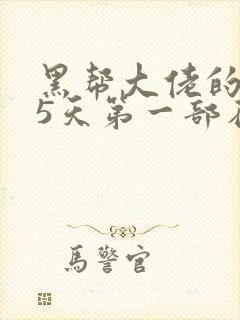 黑帮大佬的
5天第一部
馬警官